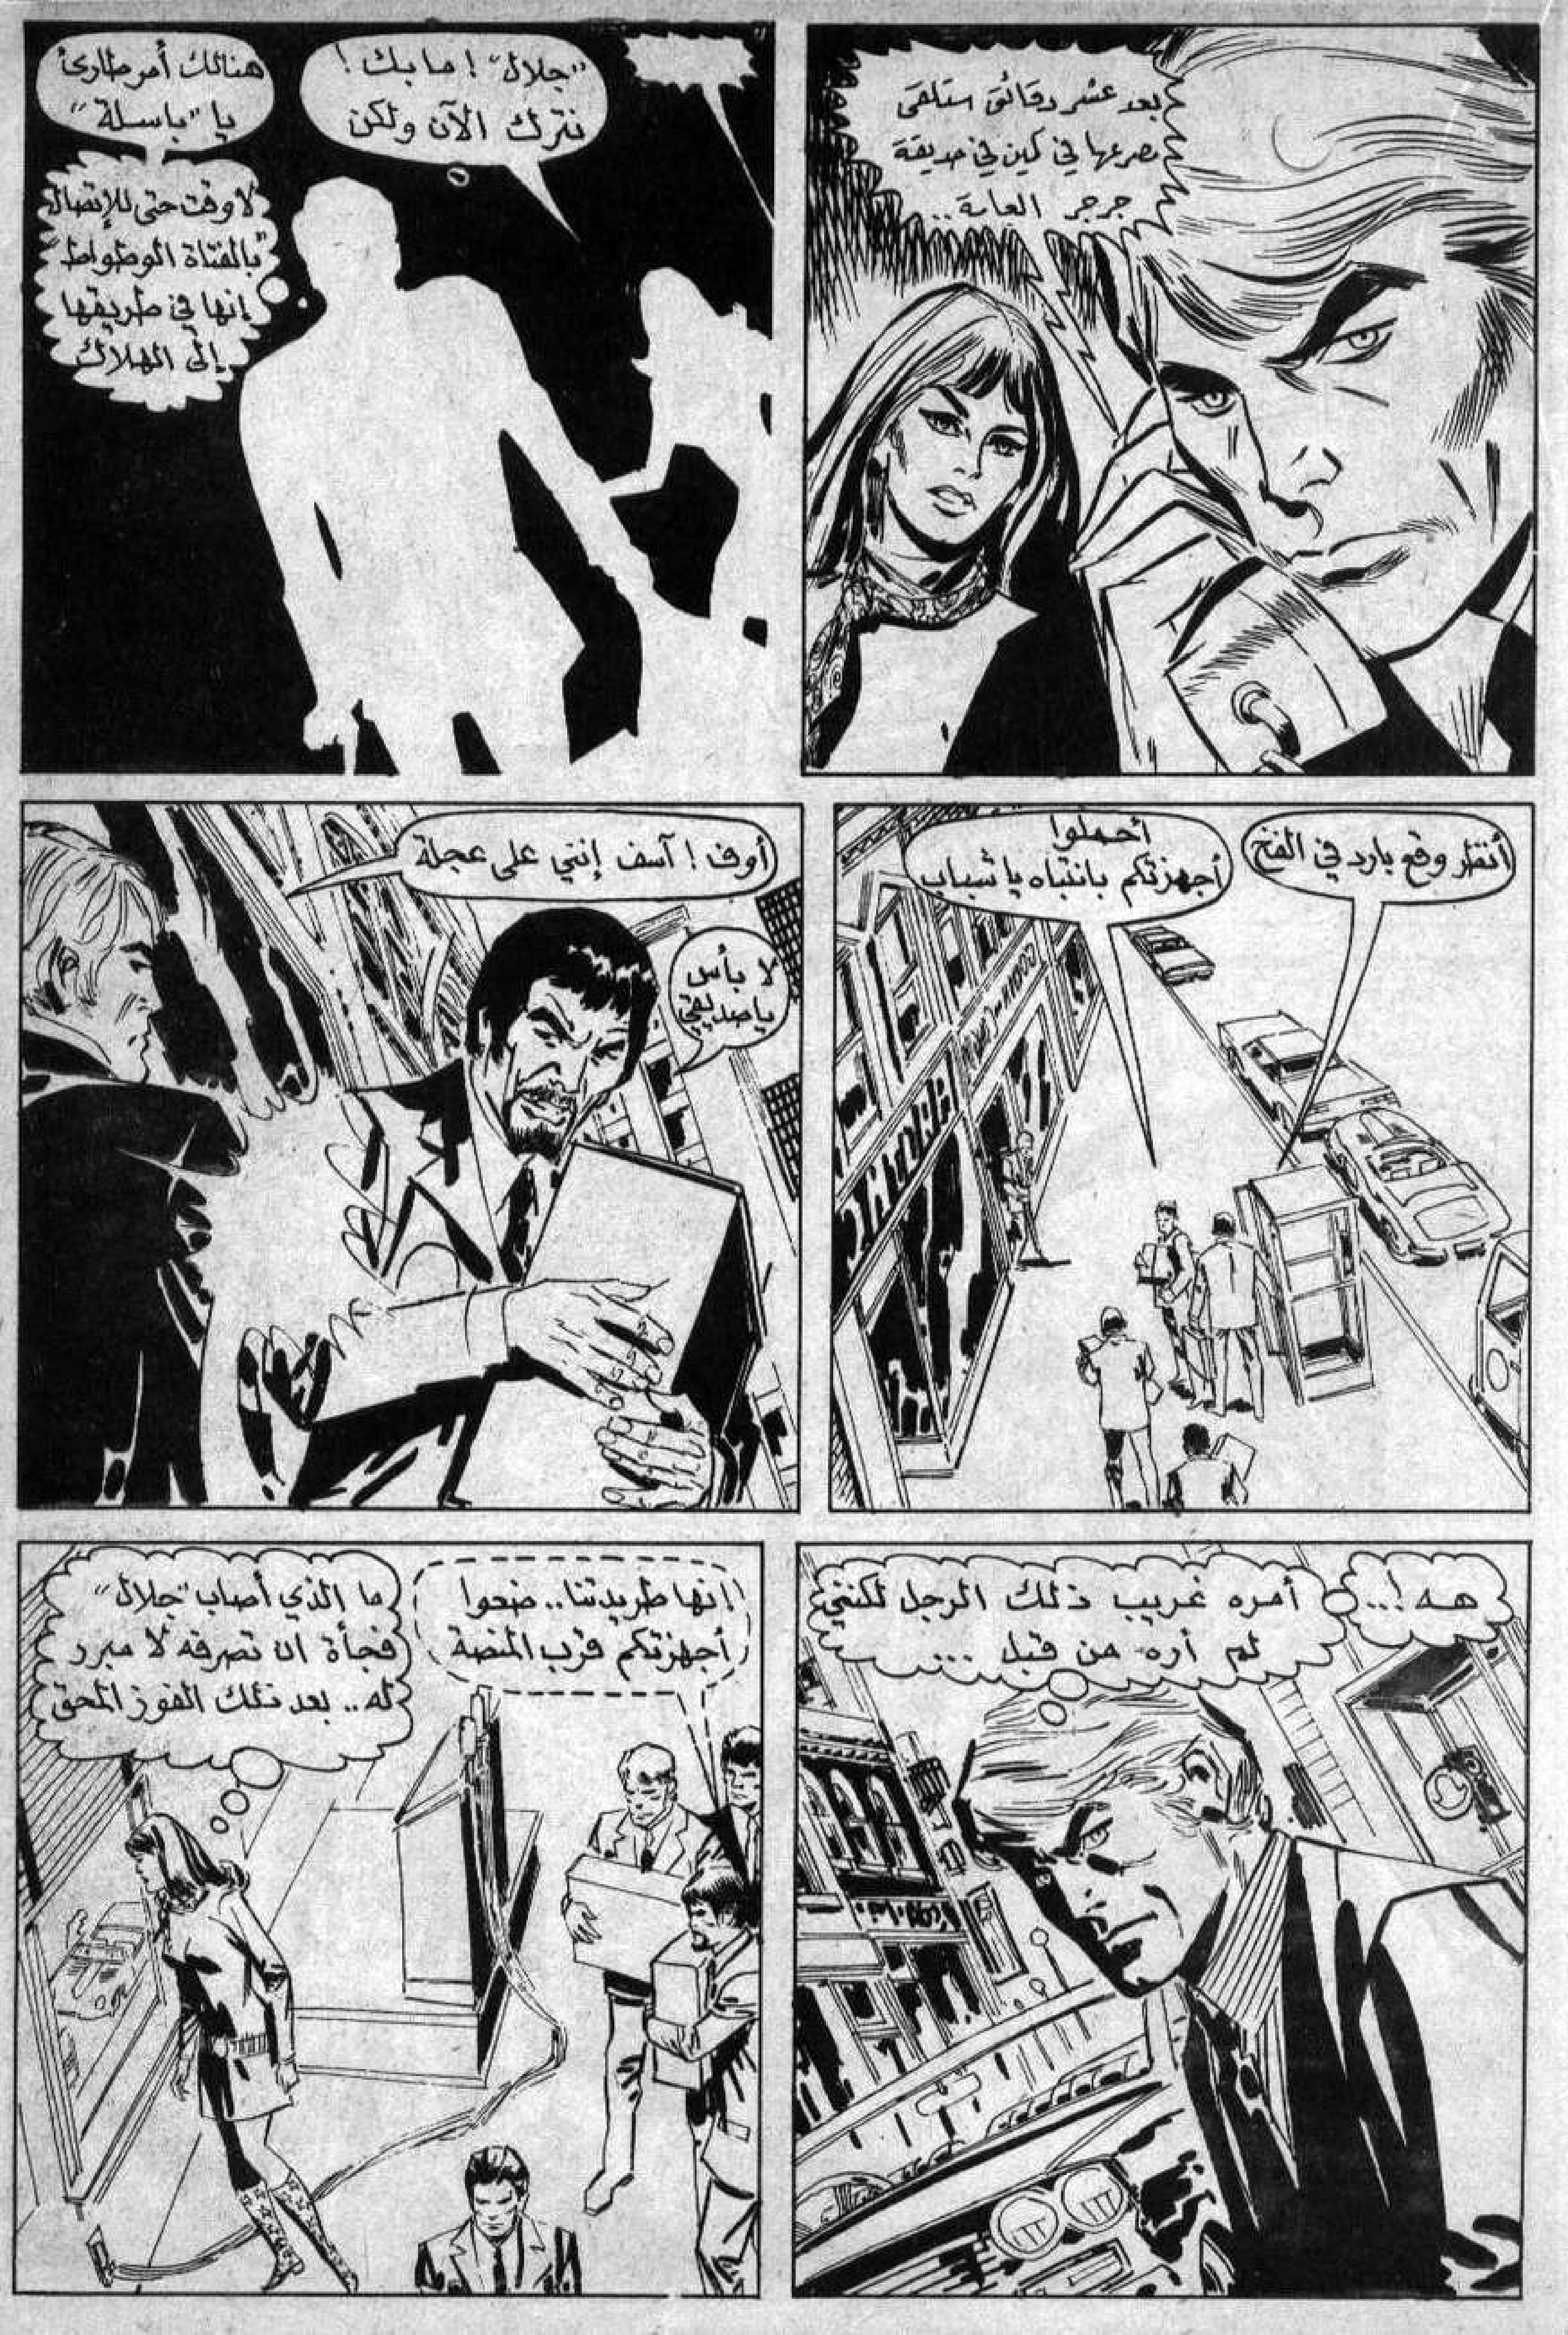 بعد عشر دقائق ستلقى
مصرعها في كمين في حديقة
جرجر العامة..
"جلال"! ما بك!
نترك الآن ولكن
هنالك أمر طارئ
يا "باسلة"
لا وقت حتى للإتصال
بالفتاة الوطواط
إنها في طريقها
إلى الهلاك
أنتظر وقع بارد في الفخ
أحملوا
أجهزتكم بانتباه يا شباب
أوف! آسف إنني على عجلة
لا بأس
يا صديقي
هه!...
أمره غريب ذلك الرجل لكنني
لم أره من قبل ...
إنها طريدتنا.. ضعوا
أجهزتكم قرب المنصة
ما الذي أصاب "جلال"
فجأة ان تصرفه لا مبرر
له.. بعد ذلك الفوز المحق